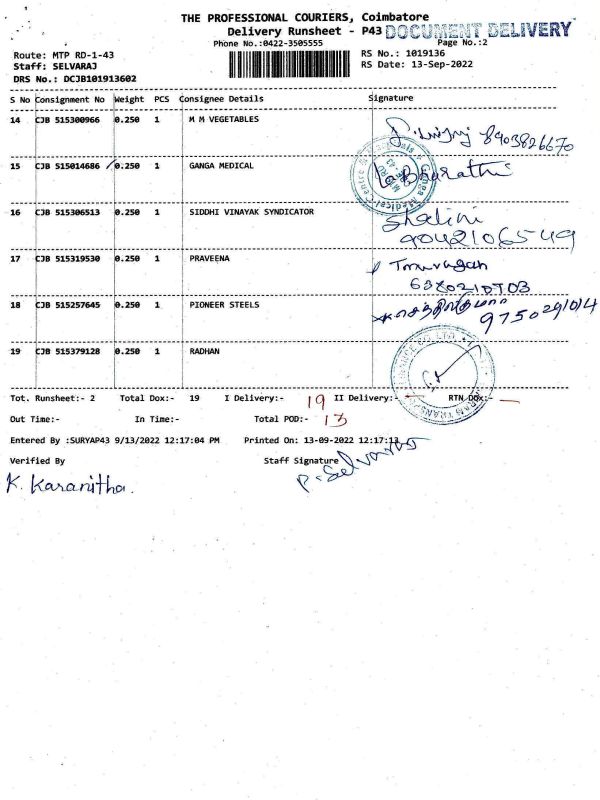 THE PROFESSIONAL COURIERS, Coimbatore
Delivery Runsheet - P43 DOCUMENT DELIVERY
Phone No.:0422-3505555 Page No.:2
Route: MTP RD-1-43 RS No.: 1019136
Staff: SELVARAJ RS Date: 13-Sep-2022
DRS No.: DCJB101913602
S No Consignment No Weight PCS Consignee Details Signature
14 CJB 515300966 0.250 1 M M VEGETABLES 8903826670
15 CJB 515014686 0.250 1 GANGA MEDICAL Bharathi
16 CJB 515306513 0.250 1 SIDDHI VINAYAK SYNDICATOR Shalini
9042106549
17 CJB 515319530 1 0.250 1 PRAVEENA
18 CJB 515257645 0.250 1 PIONEER STEELS
19 CJB 515379128 0.250 1 RADHAN
Tot. Runsheet:- 2 Total Dox:- 19 I Delivery:- 19 II Delivery:- — RTN Dox:- —
Out Time:- In Time:- Total POD:- 13
Entered By :SURYAP43 9/13/2022 12:17:04 PM Printed On: 13-09-2022 12:17:13
Verified By Staff Signature
K. Karanitha. P. Selvaraj